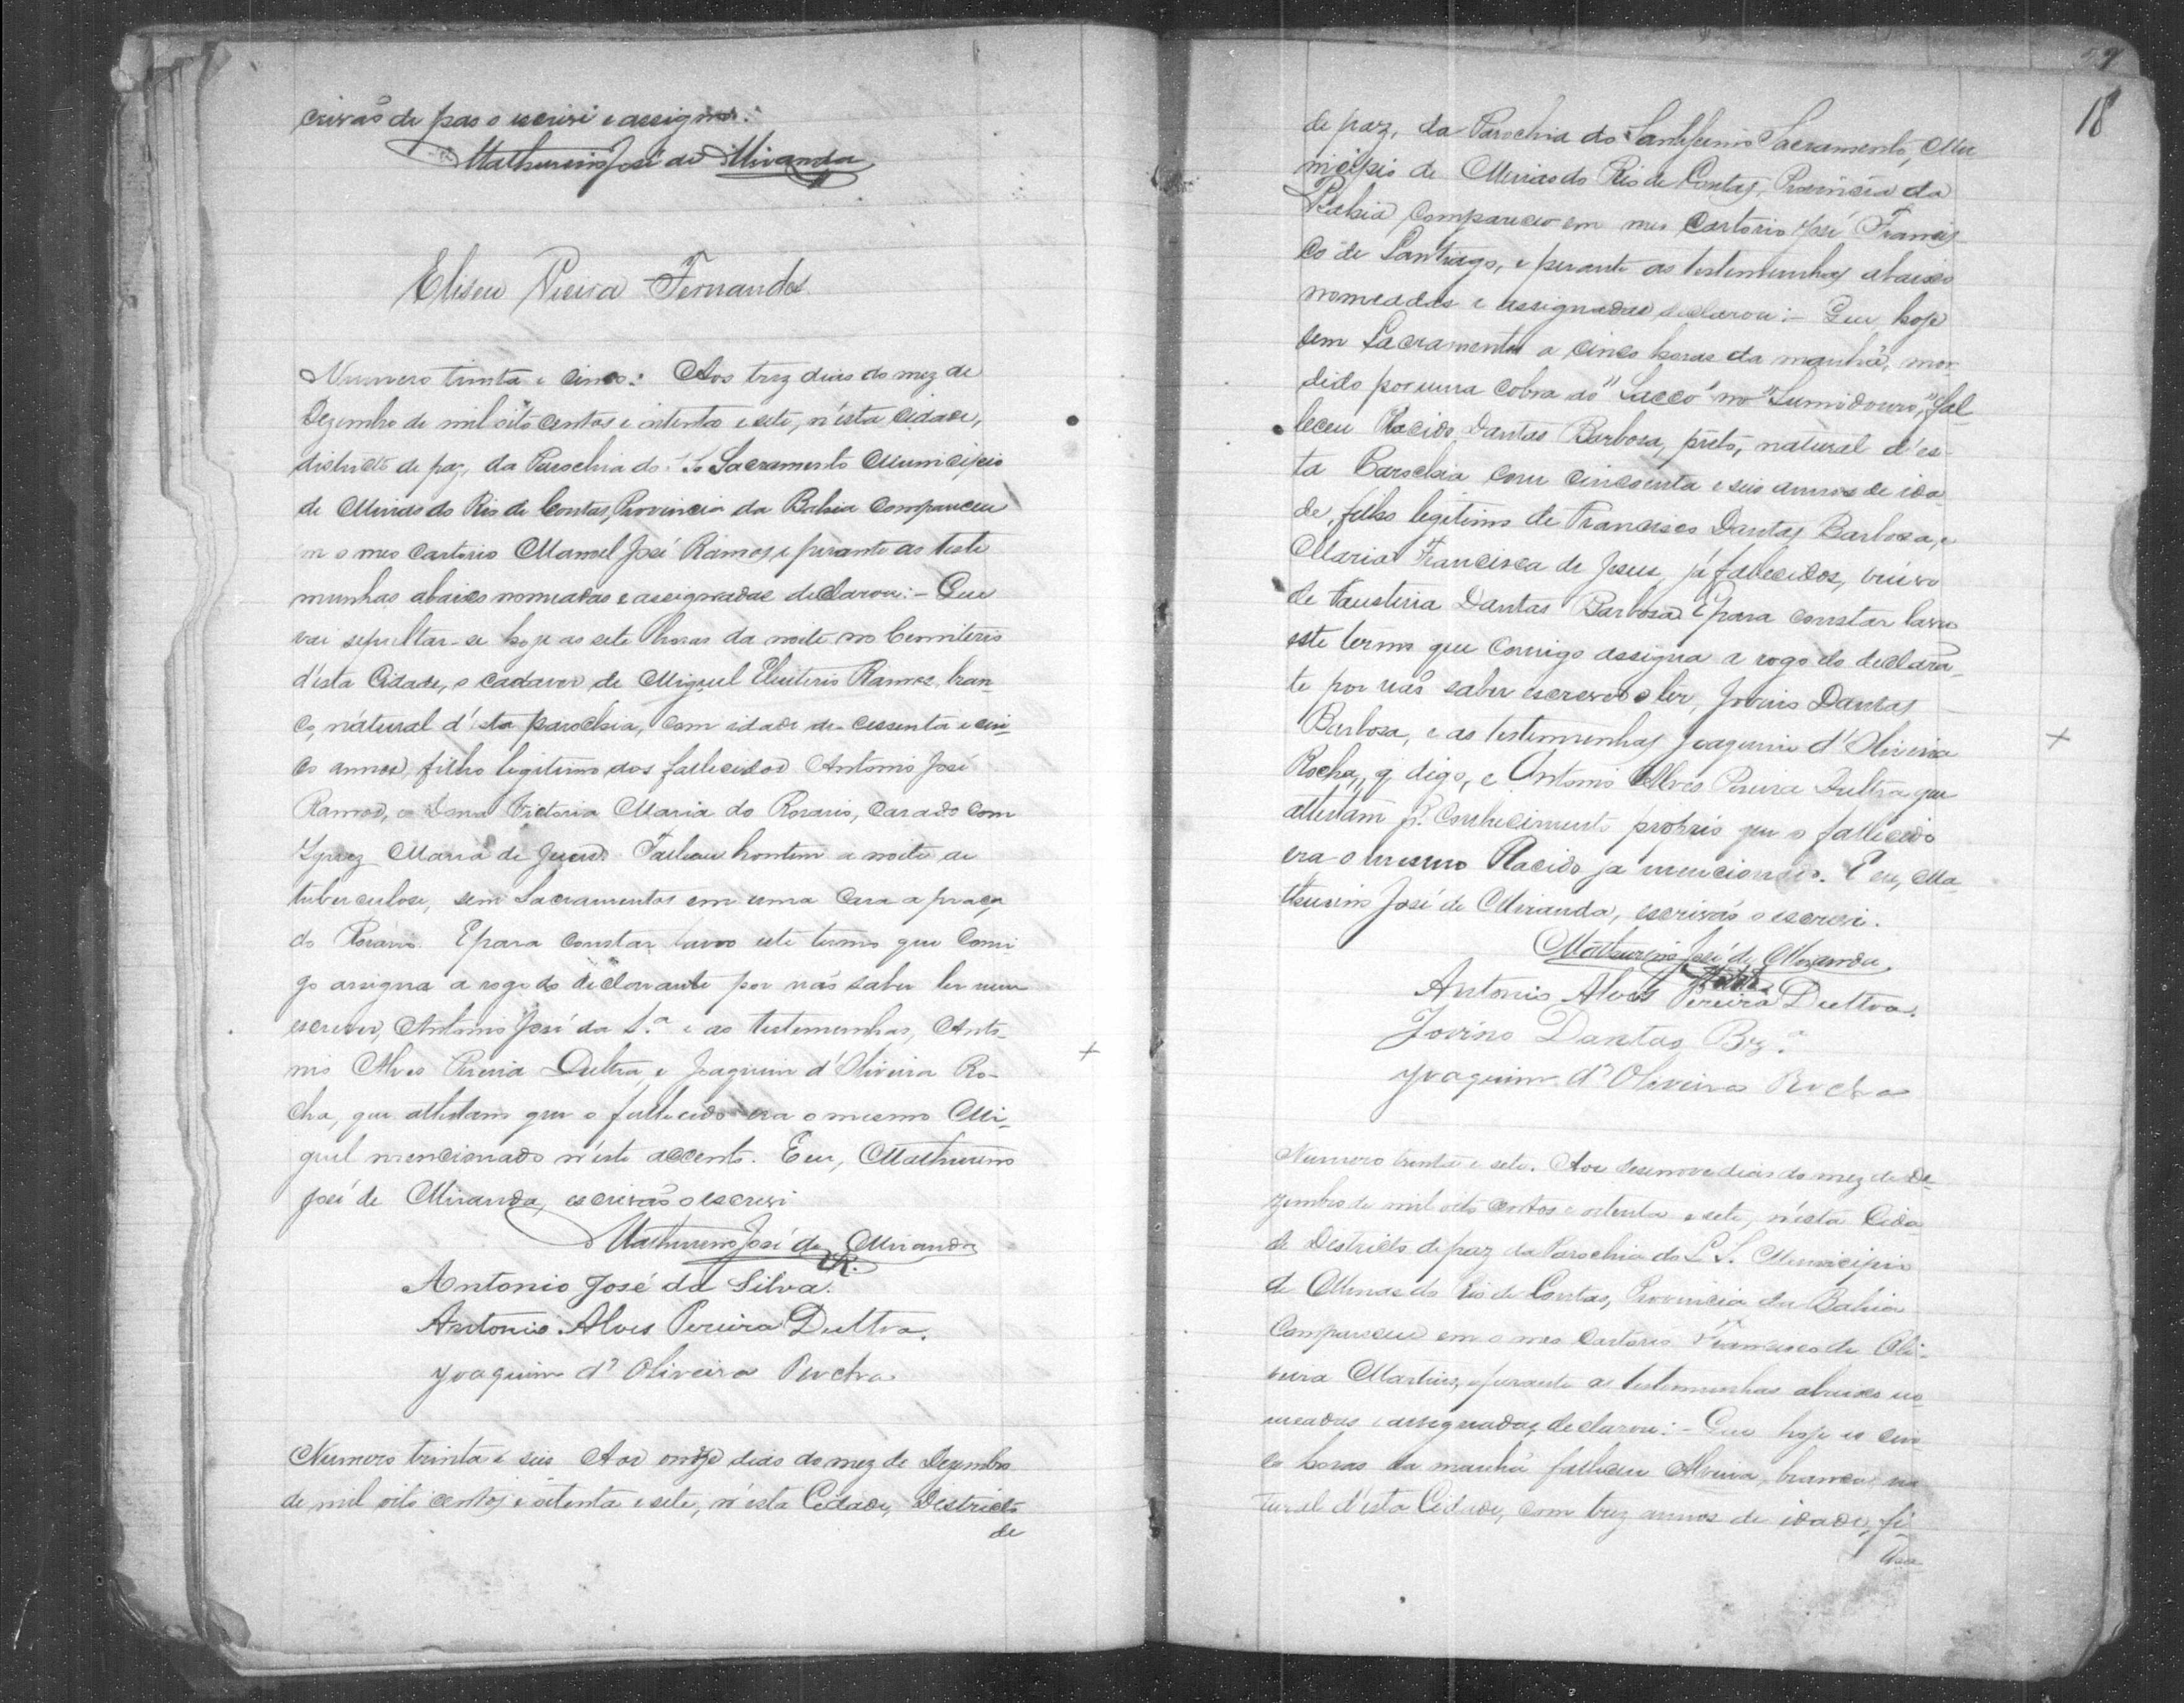 crivão de paz o escrivi e assigno.
Mathurino José de Miranda
Eliseu Vieira Fernandes
Numero trinta e cinco: Aos trez dias do mez de
Dezembro de mil oito centos e oitenta e sete, n'esta Cidade,
districto de paz, da Parochia do S. Sacramento Municipio
de Minas do Rio de Contas, Provincia da Bahia compareceu
em o meo Cartorio Manoel José Ramos, e perante as teste
munhas abaixo nomeadas e assignadas declarou:- Que
vai sepultar-se hoje as sete horas da noite no Cemiterio
d'esta Cidade, o cadaver de Miguel Eleuterio Ramos, bran-
co, natural d'esta parochia, com idade de cessenta e cin-
co annos, filho legitimo dos fallecidos Antonio José
Ramos, e Dona Victoria Maria do Rosario, casado com
Ignez Maria de Jesus. Falleceu hontem a noite de
tuberculose, sem Sacramentos em uma casa a praça
do Rosario. E para constar lavro este termo que comi-
go assigna a rogo do declarante por não saber ler nem
escrever, Antonio José da S.ª e as testemunhas, Anto-
nio Alves Pereira Dultra, e Joaquim d'Oliveira Ro-
cha, que attestam que o fallecido era o mesmo Mi-
guel mencionado n'este accento. E eu, Mathurino
José de Miranda, escrivão o escrevi
Mathurino José de Miranda
Antonio José da Silva.
Antonio Alves Pereira Dultra.
Joaquim d'Oliveira Rocha
Numero trinta e seis Aos onze dias do mez de Dezembro
de mil oito centos e oitenta e sete, n'esta Cidade, Districto
de
18
de paz, da Parochia do Santissimo Sacramento, Mu
nicipio de Minas do Rio de Contas, Provincia da
Bahia compareceo em meo Cartorio José Francis
co de Santiago, e perante as testemunhas abaixo
nomeadas e assignadas declarou:- Que hoje
sem Sacramentos a cinco horas da manhã, mor
dido por uma cobra do "Sacco" no "Sumidouro," fal
leceu Placido Dantas Barbosa, preto, natural d'es-
ta Parochia com cincoenta e seis annos de ida
de, filho legitimo de Francisco Dantas Barbosa, e
Maria Francisca de Jesus, já fallecidos, viuvo
de Faustina Dantas Barbosa E para constar lavro
este termo que comigo assigna a rogo do declaran
te por não saber escrever e ler, Jovino Dantas
Barbosa, e as testemunhas Joaquim d'Oliveira
Rocha, q. digo, e Antonio Alves Pereira Dultra que
attestam p.r conhecimento proprio que o fallecido
era o mesmo Placido já mencionado. E eu, Ma
thurino José de Miranda, escrivão o escrevi.
Mathurino José de Miranda
Antonio Alves Pereira Dultra.
Jovino Dantas Brz.ª
Joaquim d'Oliveira Rocha
Numero trinta e sete. Aos desenove dias do mez de De
zembro de mil oito centos e oitenta e sete, n'esta Cida
de Districto de paz da Parochia do S. S. Municipio
de Minas do Rio de Contas, Provincia da Bahia
Compareceu em o meo Cartorio Francisco de Oli-
veira Martins, e perante as testemunhas abaixo no
meadas e assignadas, declarou:- Que hoje as cin
co horas da manhã falleceu Alvina, branca, na
tural d'esta Cidade, com trez annos de idade, fi